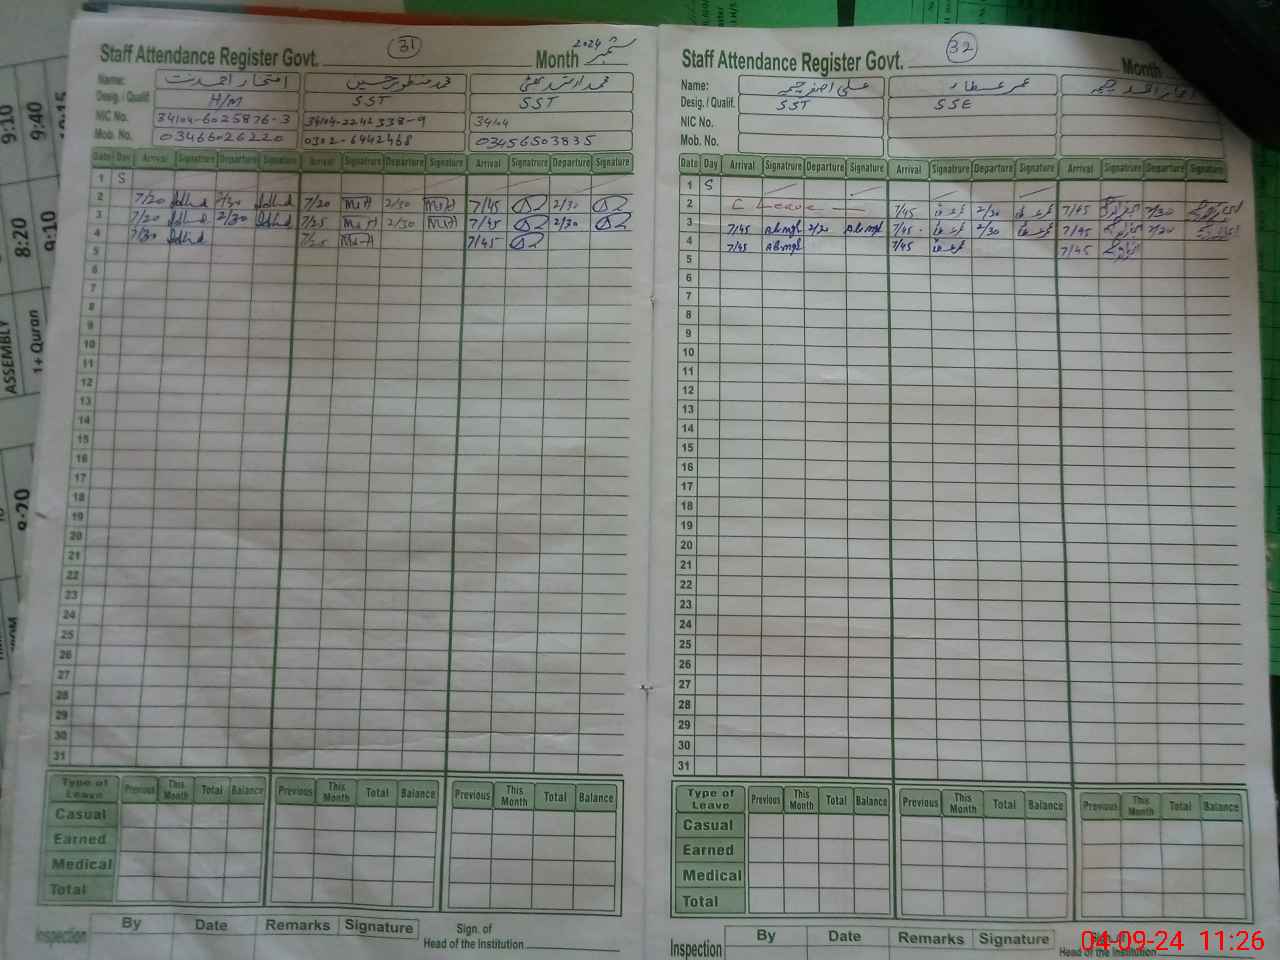 31
Staff Attendance Register Govt. Month ستمبر 2024
Name: افتخار احمد محمد منظور حسین محمد ارشد
Desig. / Qualif. H/M SST SST
NIC No. 34104-6025876-3 34104-2242338-9 3444
Mob. No. 03466026220 0302-6442468 03456503835
Date Day Arrival Signatrure Departure Signatrure Arrival Signatrure Departure Signature Arrival Signatrure Departure Signature
1 S
2 7/20 2/30 7/20 M.A 2/30 M.A 7/45 2/30
3 7/20 2/30 7/25 M.A 2/30 M.A 7/45 2/30
4 7/30 7/25 M.A 7/45
5
6
7
8
9
10
11
12
13
14
15
16
17
18
19
20
21
22
23
24
25
26
27
28
29
30
31
Type of Leave Previous This Month Total Balance Previous This Month Total Balance Previous This Month Total Balance
Casual
Earned
Medical
Total
Inspection By Date Remarks Signature Sign. of
Head of the Institution
32
Staff Attendance Register Govt. Month
Name: علی اصغر چیمہ عمر عطار
Desig. / Qualif. SST SSE
NIC No.
Mob. No.
Date Day Arrival Signatrure Departure Signature Arrival Signatrure Departure Signature Arrival Signatrure Departure Signature
1 S
2 C Leave 7/45 2/30 7/45 2/30
3 7/45 2/30 7/45 2/30 7/45 2/30
4 7/45 7/45 7/45
5
6
7
8
9
10
11
12
13
14
15
16
17
18
19
20
21
22
23
24
25
26
27
28
29
30
31
Type of Leave Previous This Month Total Balance Previous This Month Total Balance Previous This Month Total Balance
Casual
Earned
Medical
Total
Inspection By Date Remarks Signature Sign. of
Head of the Institution
04-09-24 11:26
9:10
9:40
10:15
8:20
9:10
ASSEMBLY
1+ Quran
TO
9:20